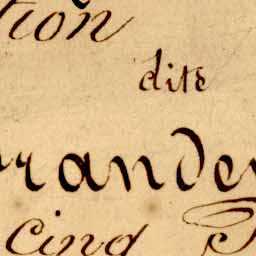 tion
dite
rande
cinq